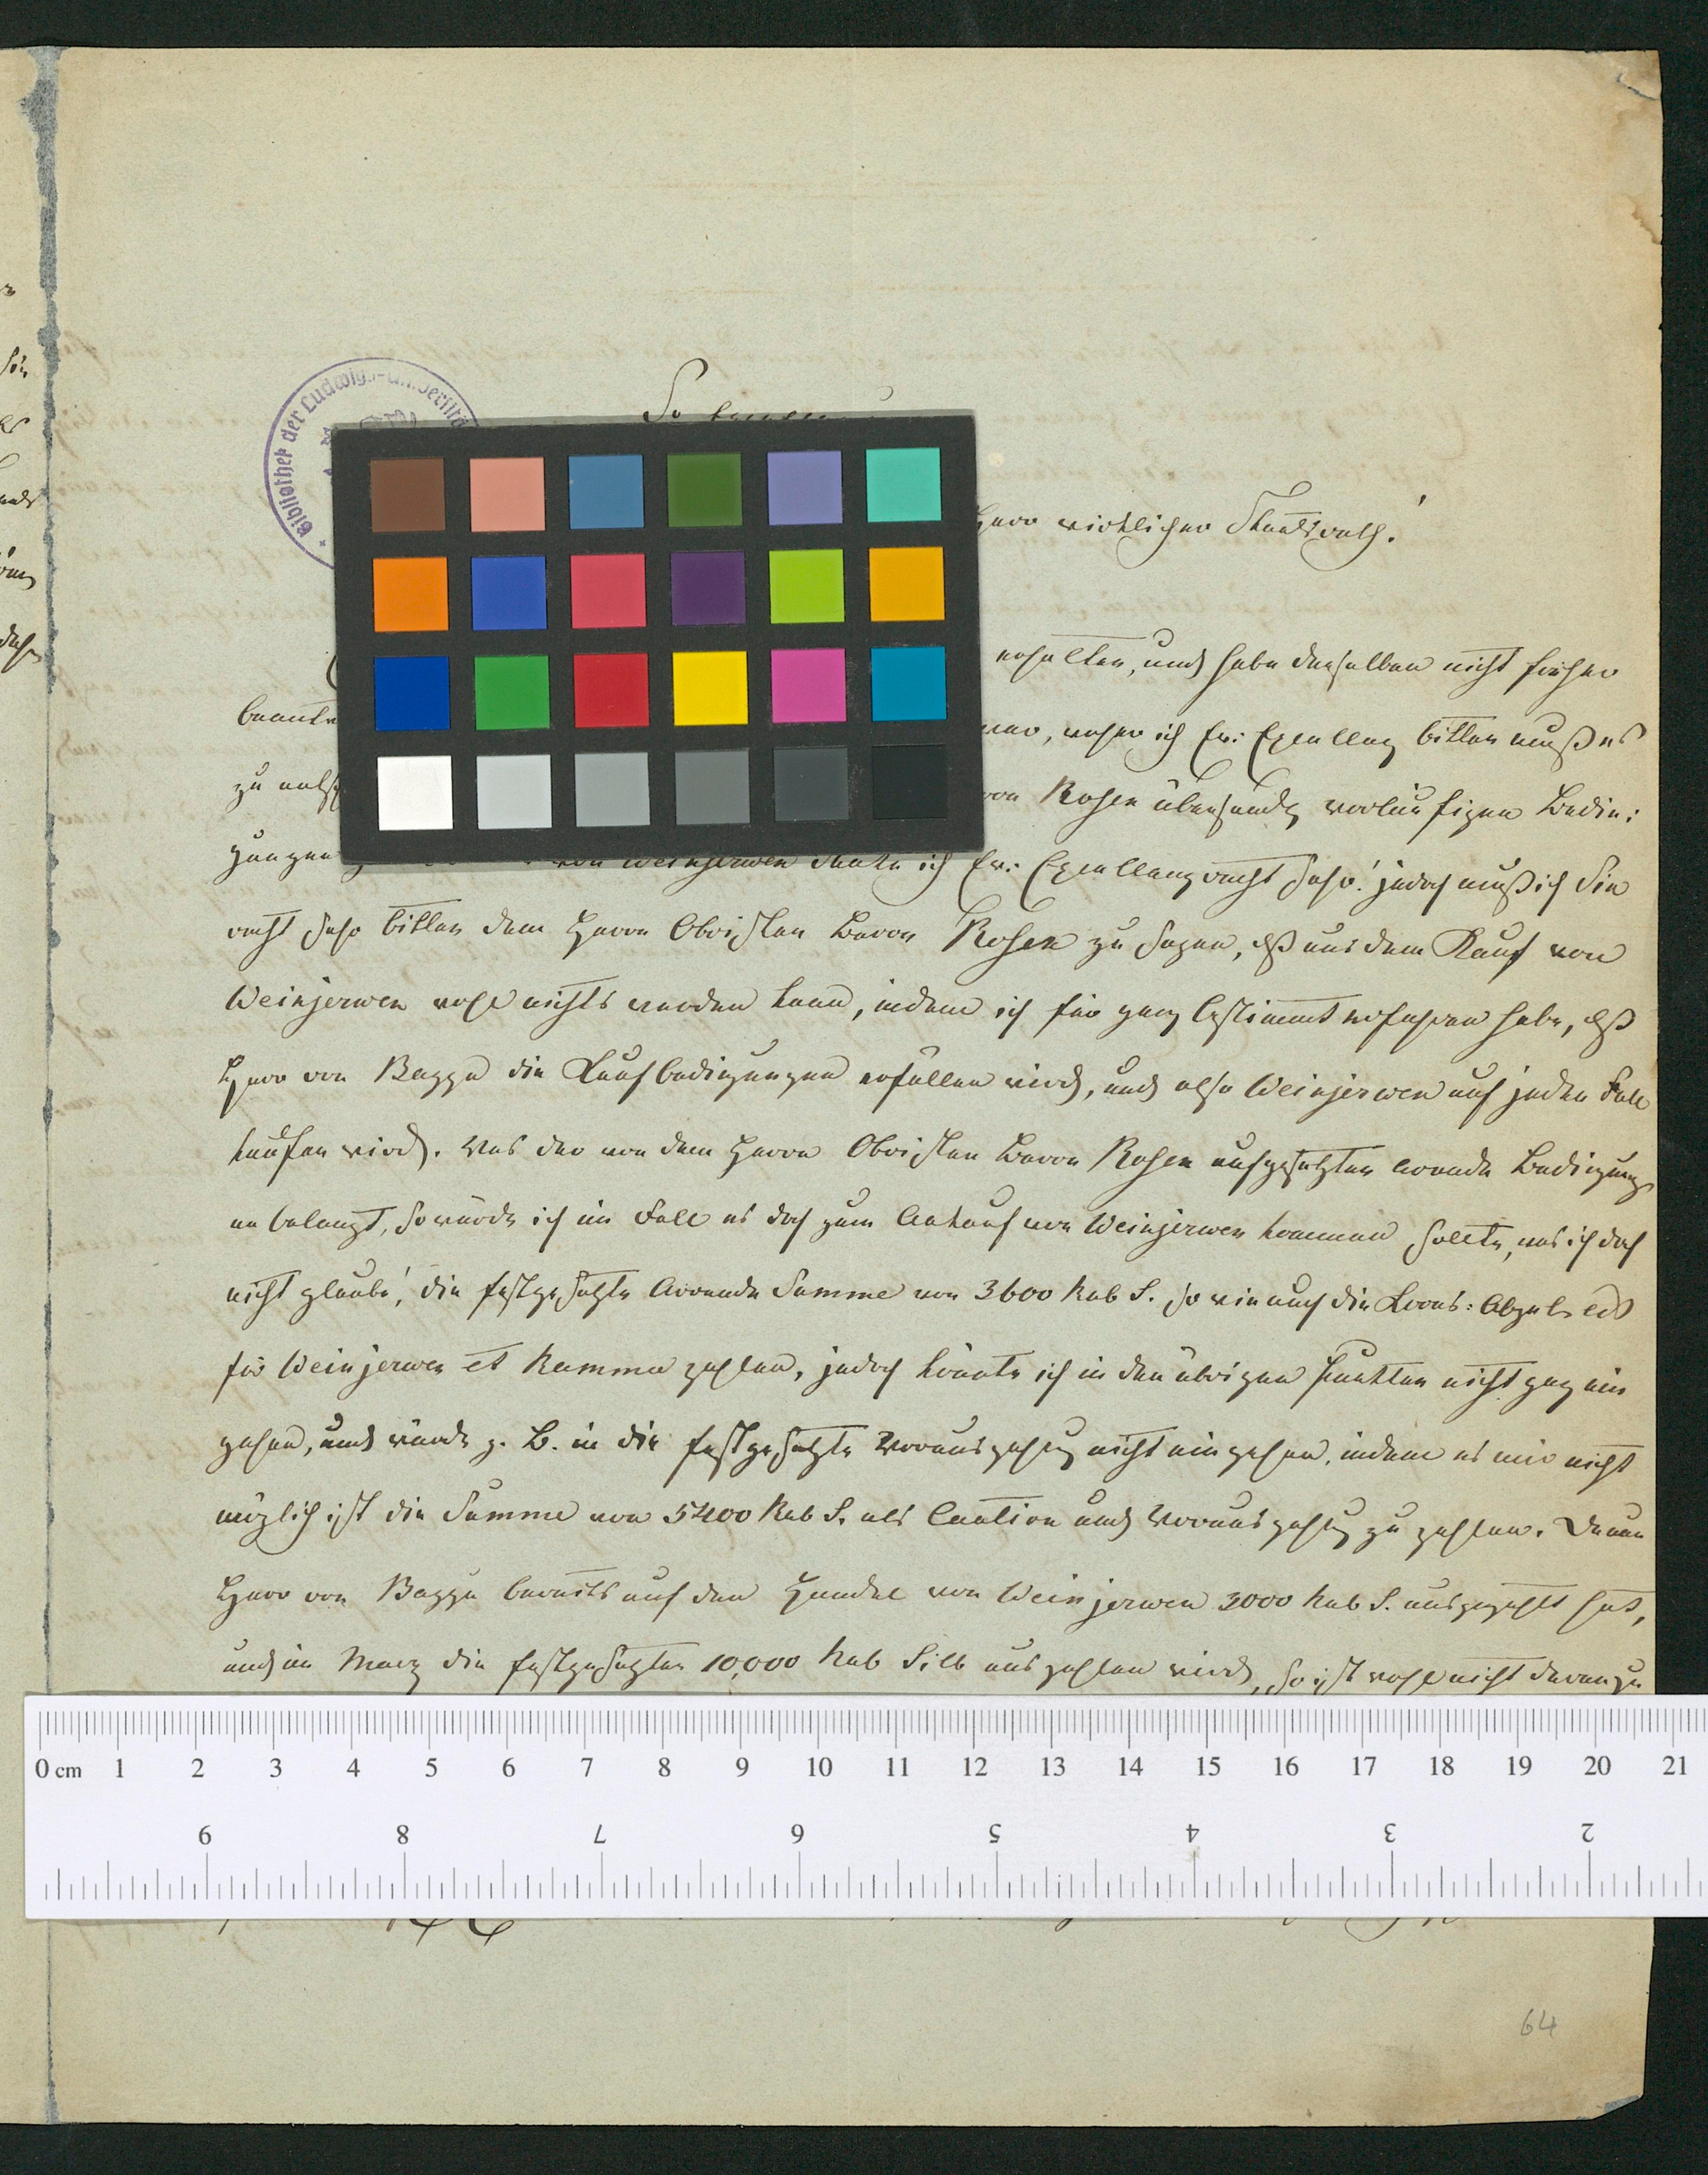 Bibliothek der Ludwigs-Universität
Herr wirklicher Staatsrath!
erhalten, und habe denselben nicht früher
beantw
war, woher ich Ew: Excellenz bitten muß es
zu ents
von Rosen übersandten vorläufigen Bedin:
gungen von Weinjerwen danke ich Ew: Excellenz recht sehr! jedoch muß ich Sie
recht sehr bitten dem Herrn Obristen Baron Rosen zu sagen, daß aus dem Kauf von
Weinjerwen wohl nichts werden kann, indem ich für ganz bestimmt erfahren habe, daß
Herr von Bagge die Kaufbedingungen erfüllen wird, und also Weinjerwen auf jeden Fall
kaufen wird. Was der von dem Herrn Obristen Baron Rosen aufgesetzten Arende Bedigung
anbelangt, so würde ich im Fall es doch zum Ankauf von Weinjerwen kommen sollte, was ich doch
nicht glaube, die festgesetzte Arende Summe von 3600 Rub S. so wie auch die Krons: Abgaben
für Weinjerwen et Kamma zahlen, jedoch könnte ich in den übrigen Punkten nicht ganz ein
gehen, und würde z. B. in die festgesetzte Vorauszahlung nicht eingehen, indem es mir nicht
möglich ist die Summe von 5400 Rub S. als Caution und Vorauszahlung zu zahlen. Da nun
Herr von Bagge bereits auf den Handel von Weinjerwen 3000 Rub S. ausgezahlt hat,
und im Marz die festgesetzten 10,000 Rub Silb auszahlen wird, so ist wohl nicht daran zu
0 cm 1 2 3 4 5 6 7 8 9 10 11 12 13 14 15 16 17 18 19 20 21
9 8 7 6 5 4 3 2
64